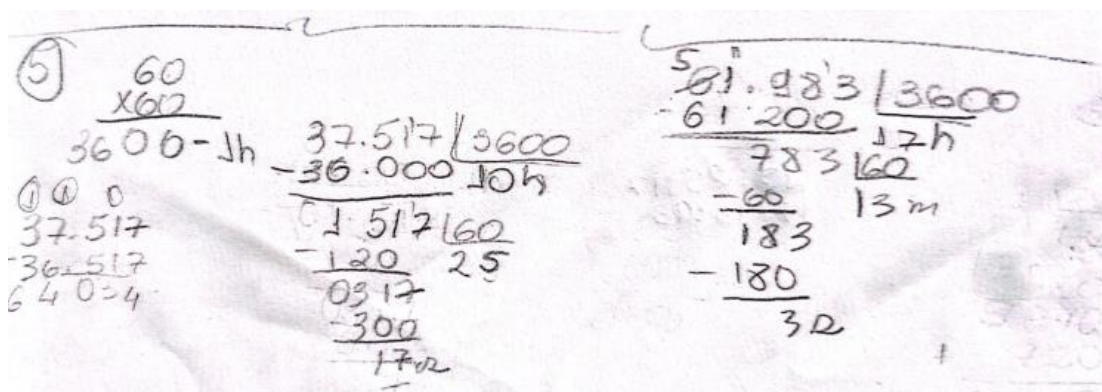 5
60
x60
3600 - 1h
37.517
36.517
37.517 3600
-36.000 10h
1 517 60
-120 25
0317
-300
17s
61.983 3600
61 200 17h
783 60
-60 13 m
183
-180
3s